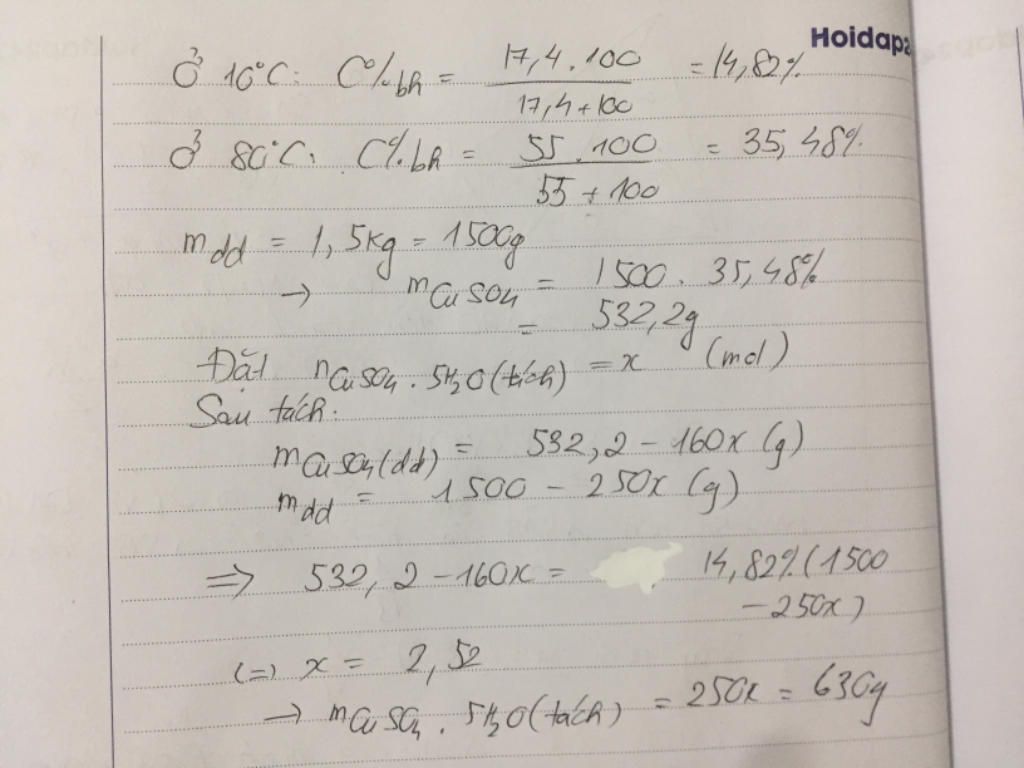 Hoidap2
Ở 10°C: C%bh = 17,4.100 / 17,4+100 = 14,82%
Ở 80°C: C%bh = 55.100 / 55+100 = 35,48%
mdd = 1,5kg = 1500g
→ mCuSO4 = 1500.35,48%
= 532,2g
Đặt nCuSO4.5H2O(tách) = x (mol)
Sau tách:
mCuSO4(dd) = 532,2-160x (g)
mdd = 1500-250x (g)
⇒ 532,2-160x = 14,82%(1500
-250x)
(=) x = 2,52
→ mCuSO4.5H2O(tách) = 250x = 630g